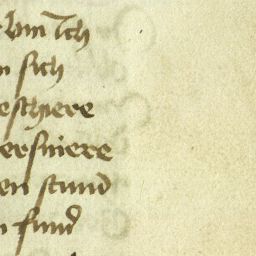 bin Ich
n sich
eschiere
ersniere
en stund
n fund